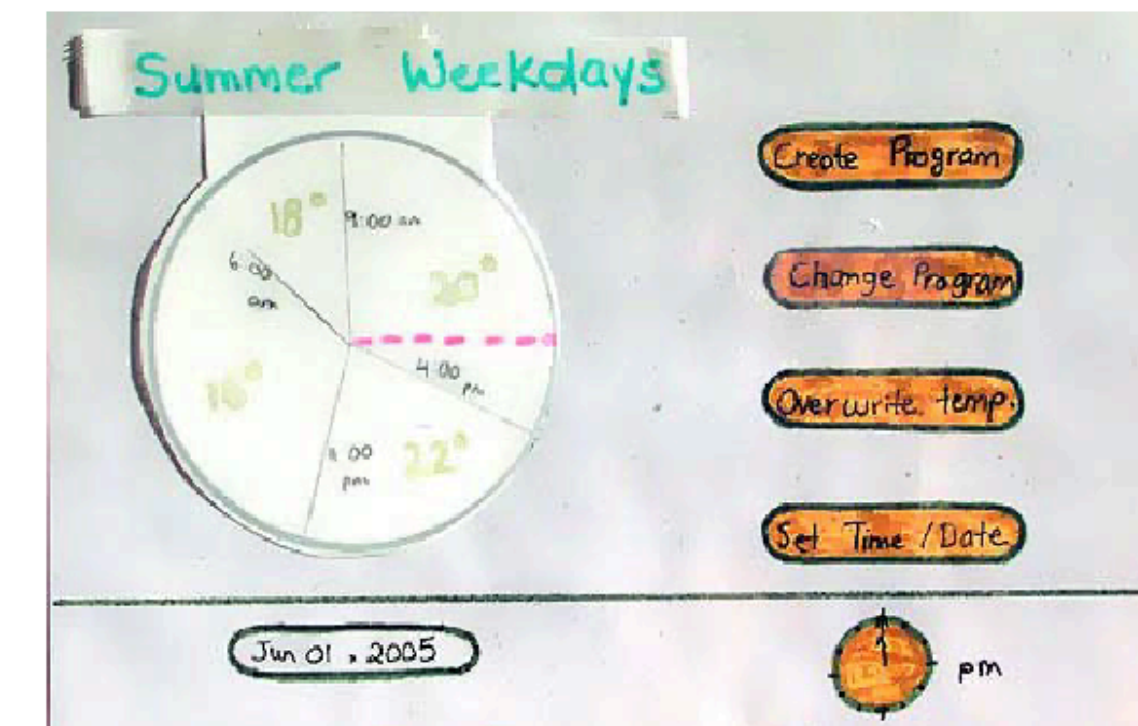 Summer Weekdays
18°
9:00 am
20°
6:00
am
4:00
pm
16°
:00
pm
22°
Create Program
Change Program
Overwrite temp.
Set Time / Date
Jun 01, 2005
pm